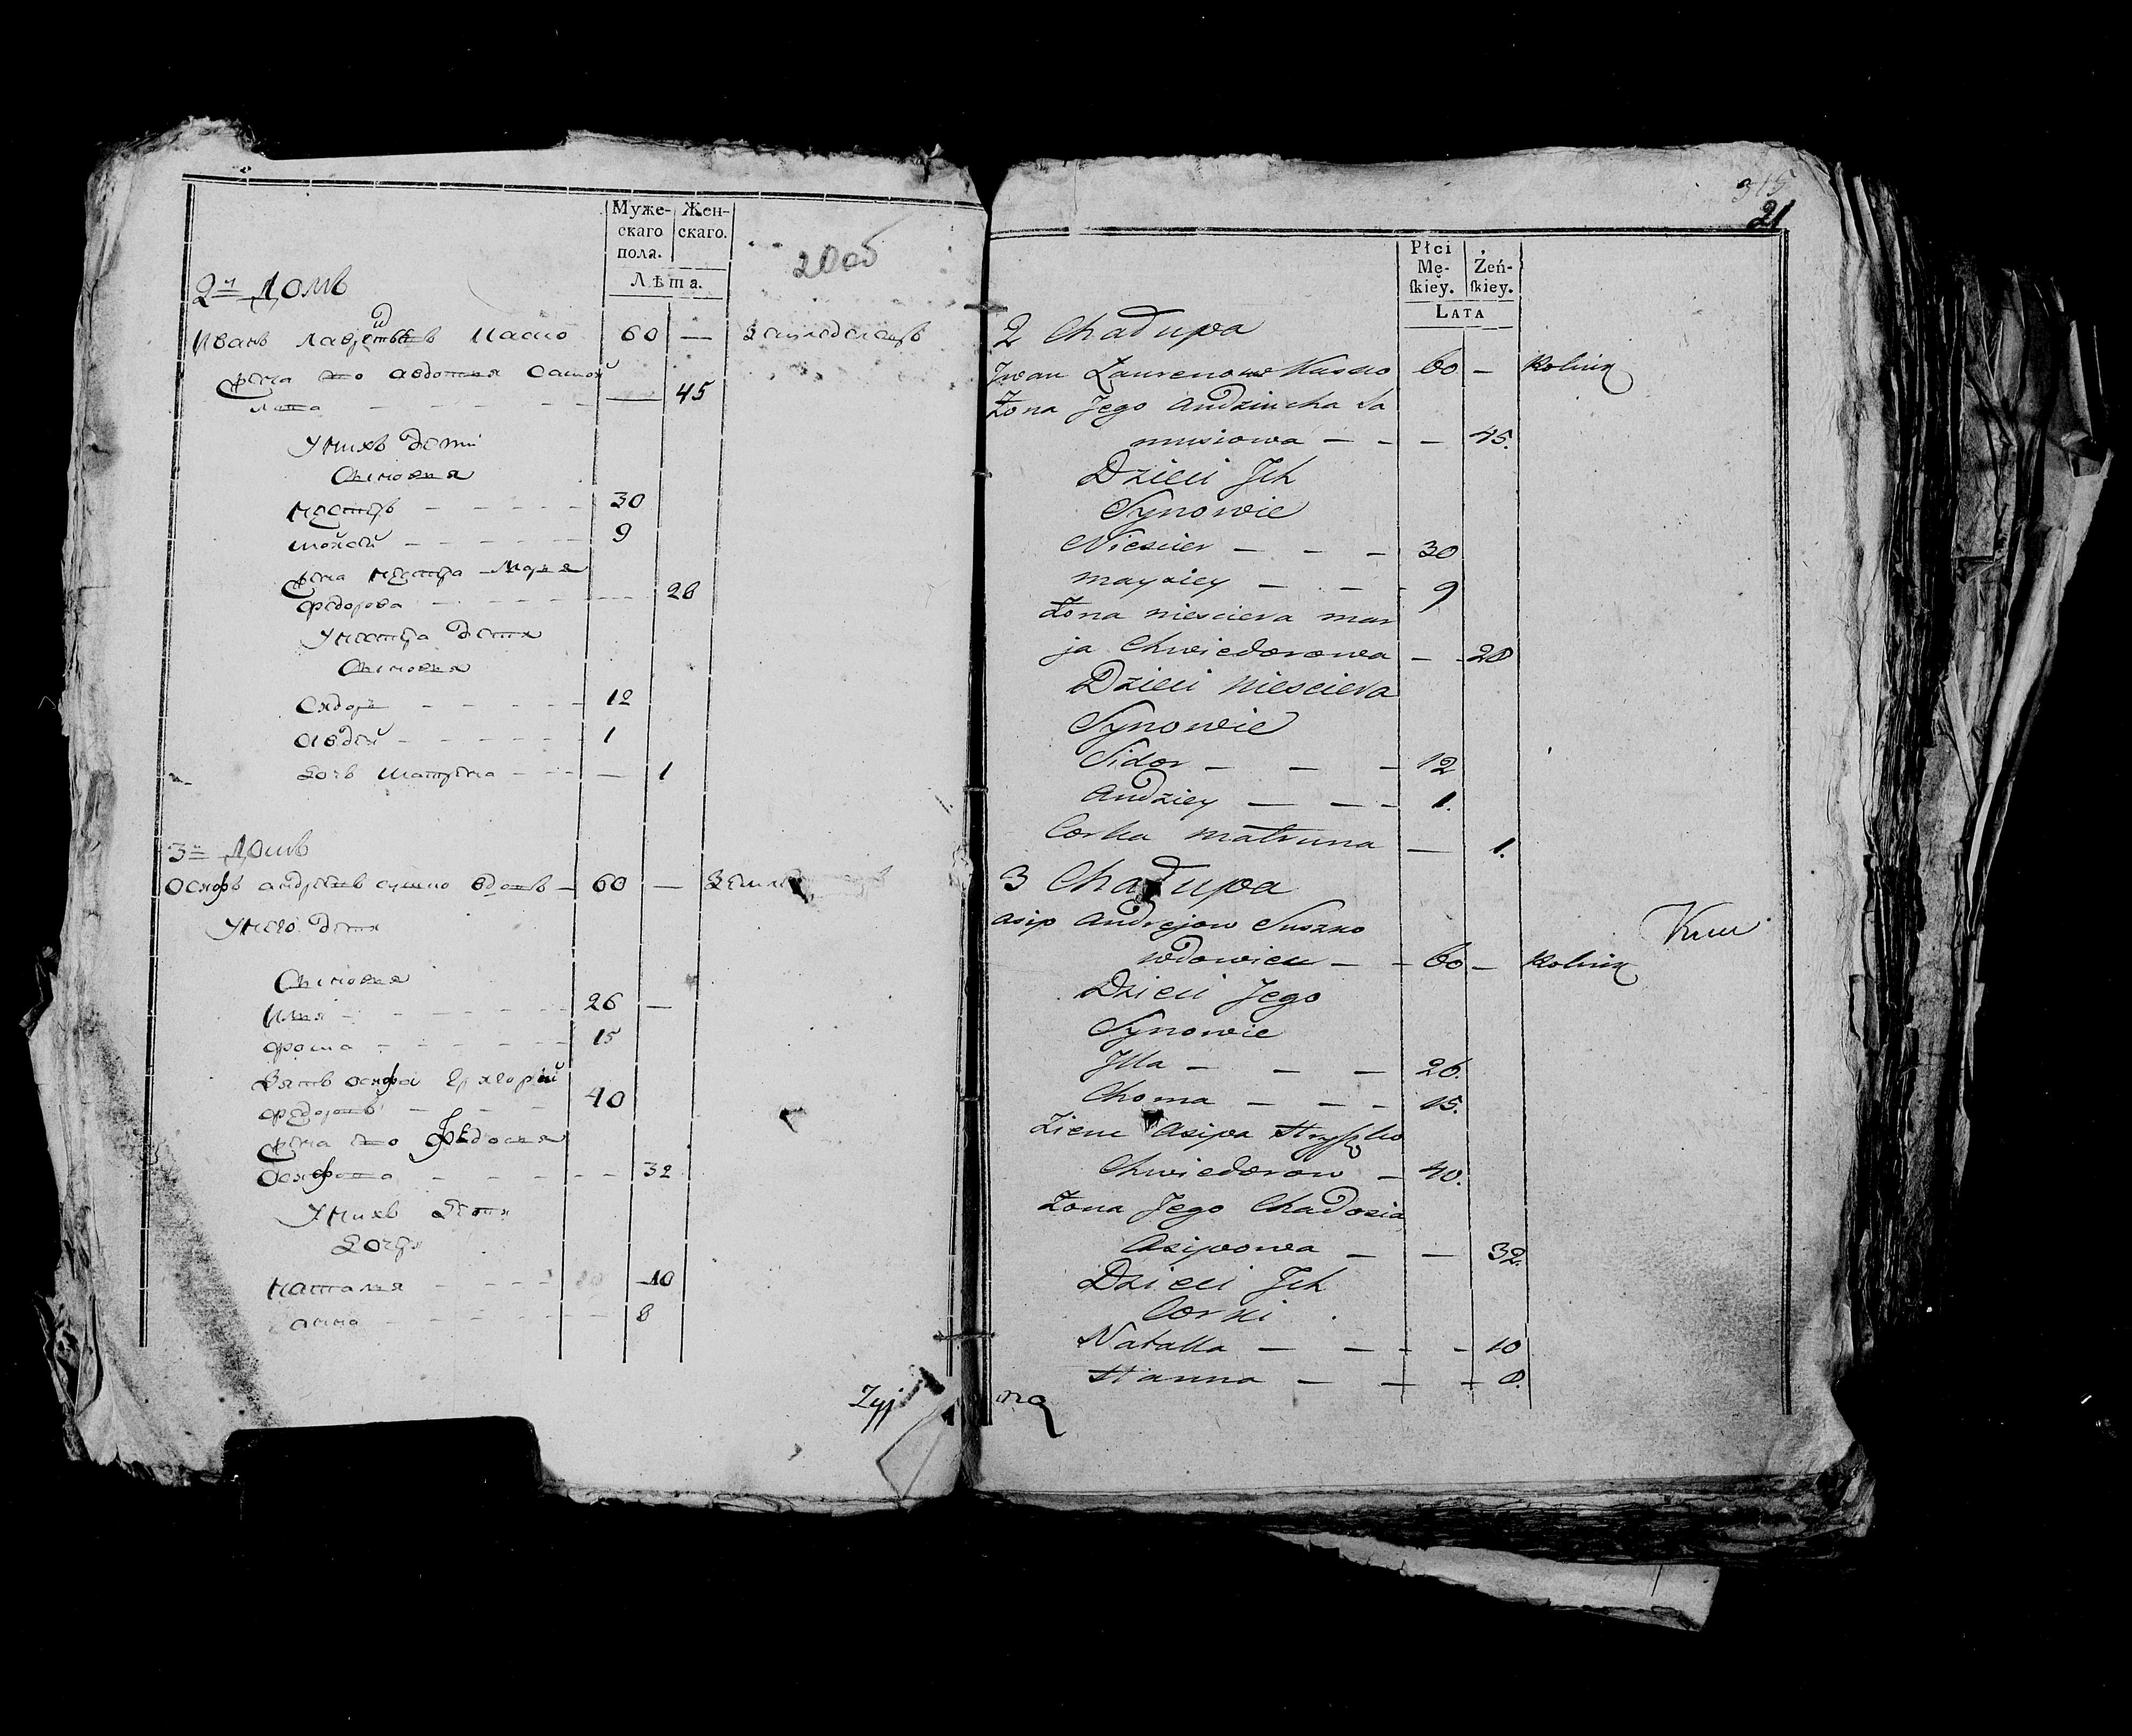 Муже-
скаго
пола.
Жен-
скаго.
Лѣта.
20об
2й Домъ
Иванъ 60 — Земледелецъ
жена его авдотья Самой
лова — 45
У нихъ дети
Сыновья
нестеръ 30
мойсей 9
жена нестера Марья
федорова 28
У нестера дети
Сыновья
Сидоръ 12
авдей 1
Дочь матрена — 1
3й Домъ
Осифъ андреевъ сушко вдовъ 60 —
У него дети
Сыновья
Илья 26 —
фома 15
Зять осифа Григорий
федоровъ 40
жена его федосья
Осифова 32
У нихъ дети
Дочери
наталья 10
анна 8
Zyj
315
21
Płci
Mę-
ſkiey.
Żeń-
ſkiey.
LATA
2 Chałupa
Jwan Laurenow 60 — Rolnik
Żona Jego Audziucha Sa
musiowa — — — 45.
Dzieci Jch
Synowie
Niescier — — — 30
maysiey — — 9
Żona niesciera mar
ja Chwiedorowa — — 28
Dzieci niesciera
Synowie
Sidor — — — 12
Audziey — — — 1.
Corka matruna — 1.
3 Chałupa
asip Andrejow Suszko
wdowiec — — 60 — Rolnik
Dzieci Jego
Synowie
Jlla — — — 26.
Choma — — — 15.
Zienc Asipa Hryszko
Chwiedorow — 40.
Żona Jego Chadosia
Asipowa — — 32.
Dzieci Jch
Corki
Natalla — — — — 10
Hanna — — — 8.